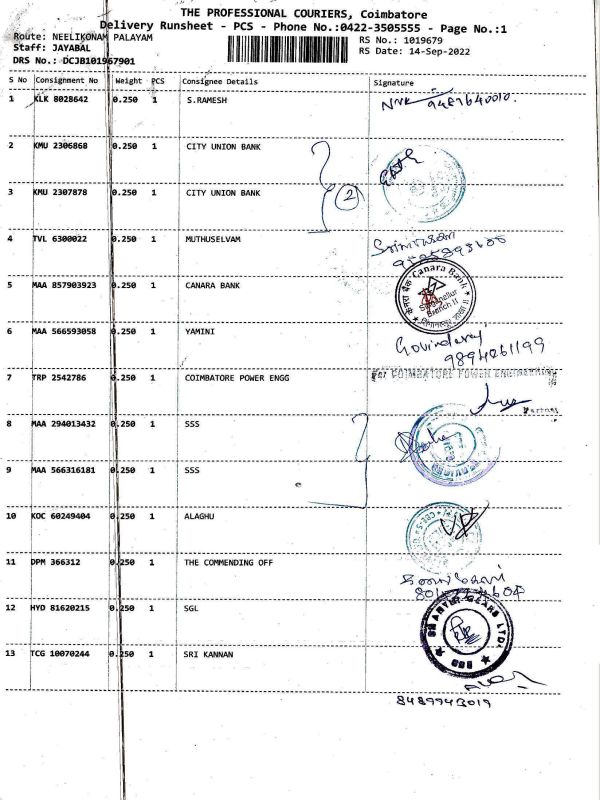 THE PROFESSIONAL COURIERS, Coimbatore
Delivery Runsheet - PCS - Phone No.:0422-3505555 - Page No.:1
Route: NEELIKONAM PALAYAM
RS No.: 1019679
Staff: JAYABAL
RS Date: 14-Sep-2022
DRS No.: DCJB101967901
S No Consignment No Weight PCS Consignee Details Signature
1 KLK 8028642 0.250 1 S.RAMESH
2 KMU 2306868 0.250 1 CITY UNION BANK
3 KMU 2307878 0.250 1 CITY UNION BANK
2
4 TVL 6300022 0.250 1 MUTHUSELVAM
Srinivasan
5 MAA 857903923 0.250 1 CANARA BANK
Canara Bank
Branch II
6 MAA 566593058 0.250 1 YAMINI
Govindaraj
9894261199
7 TRP 2542786 0.250 1 COIMBATORE POWER ENGG
For COIMBATORE POWER ENGINEERING
Partner
8 MAA 294013432 0.250 1 SSS
9 MAA 566316181 0.250 1 SSS
10 KOC 60249404 0.250 1 ALAGHU
11 DPM 366312 0.250 1 THE COMMENDING OFF
12 HYD 81620215 0.250 1 SGL
SHANTHI GEARS LTD.
13 TCG 10070244 0.250 1 SRI KANNAN
8489943019